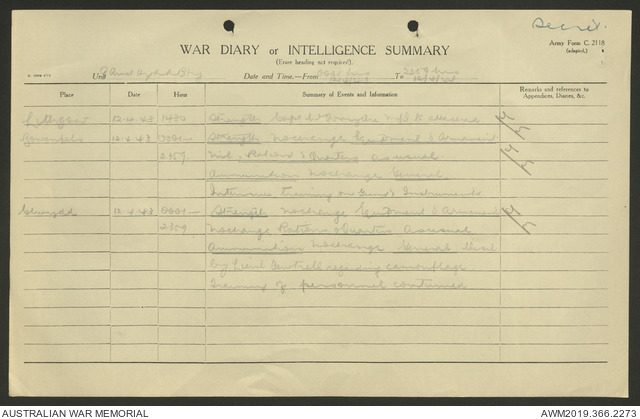 Secret.
Army Form C. 2118
(adapted.)
WAR DIARY or INTELLIGENCE SUMMARY
(Erase heading not required).
Unit
Date and Time.—From To
Place Date Hour Summary of Events and Information Remarks and references to Appendices, Diaries, &c.
Lithgow 12.4.43 1430 Strength Capt
12.4.43 0001— Strength No change Equipment & Armament
2359 Nil. Rations & Quarters as usual
Ammunition No change General
Intensive training on Guns & Instruments
12.4.43 0001— Strength No change Equipment & Armament
2359 No change Rations & Quarters As usual
Ammunition No change General
by Lieut regarding camouflage
Training of personnel continued
AUSTRALIAN WAR MEMORIAL
AWM2019.366.2273